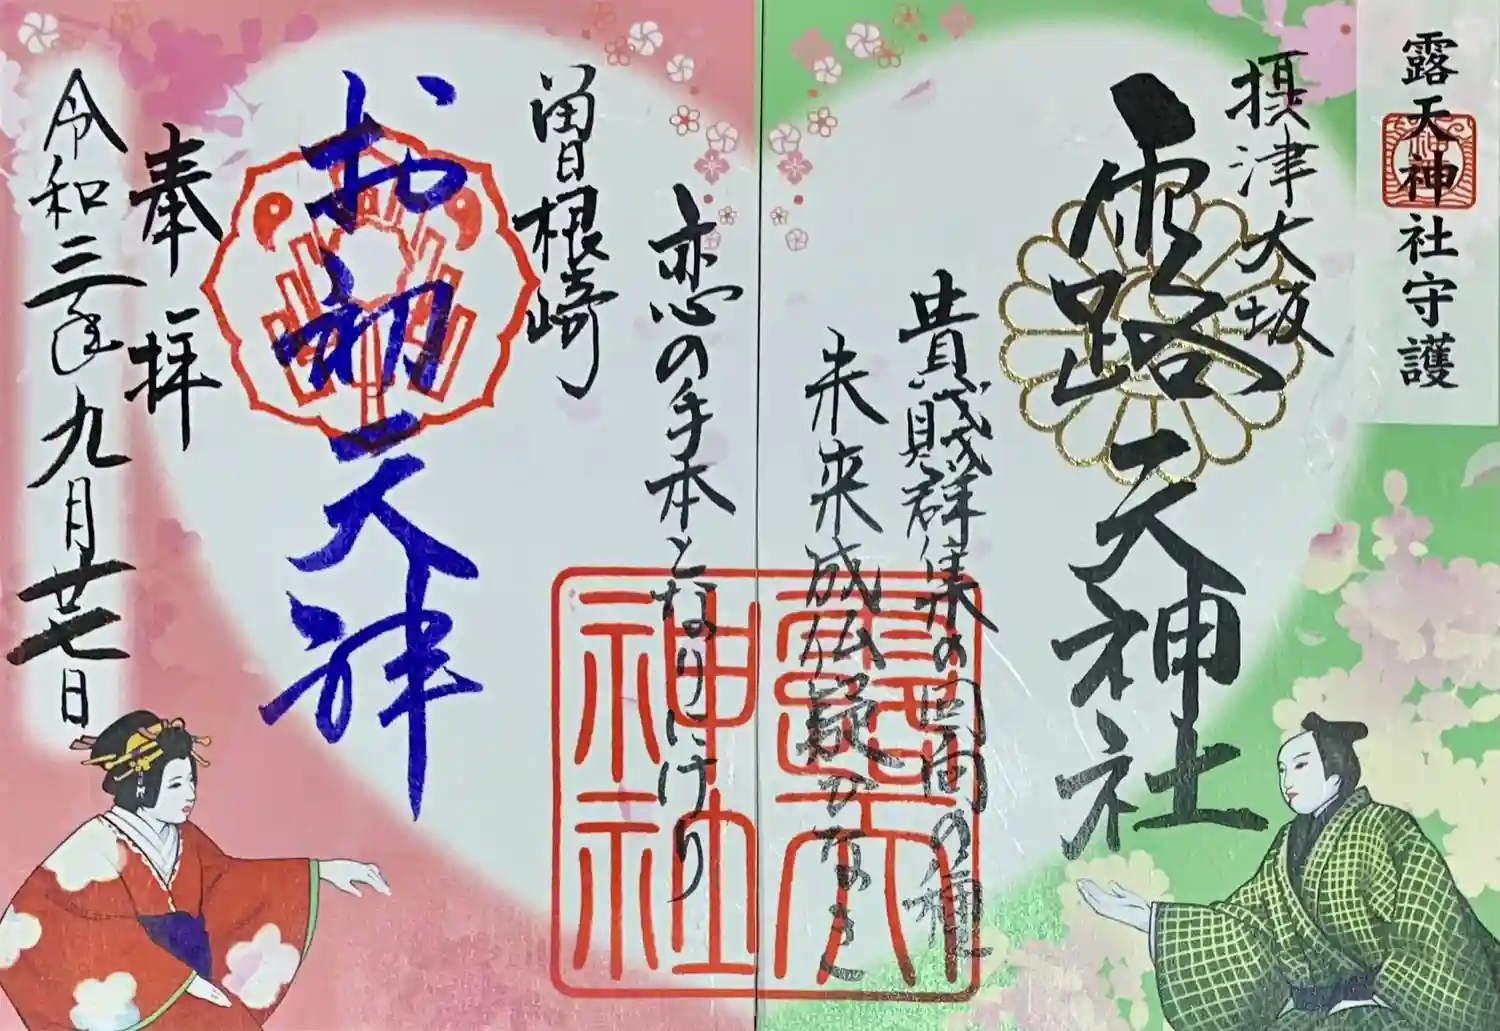 露天神社守護
摂津大坂
露天神社
貴賤群集の回向の種
未来成仏疑ひなき
恋の手本となりにけり
曽根崎
お初天神
奉拝
令和三年九月廿七日
露天
神社